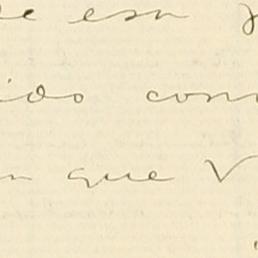 de esa
ido con
en que V